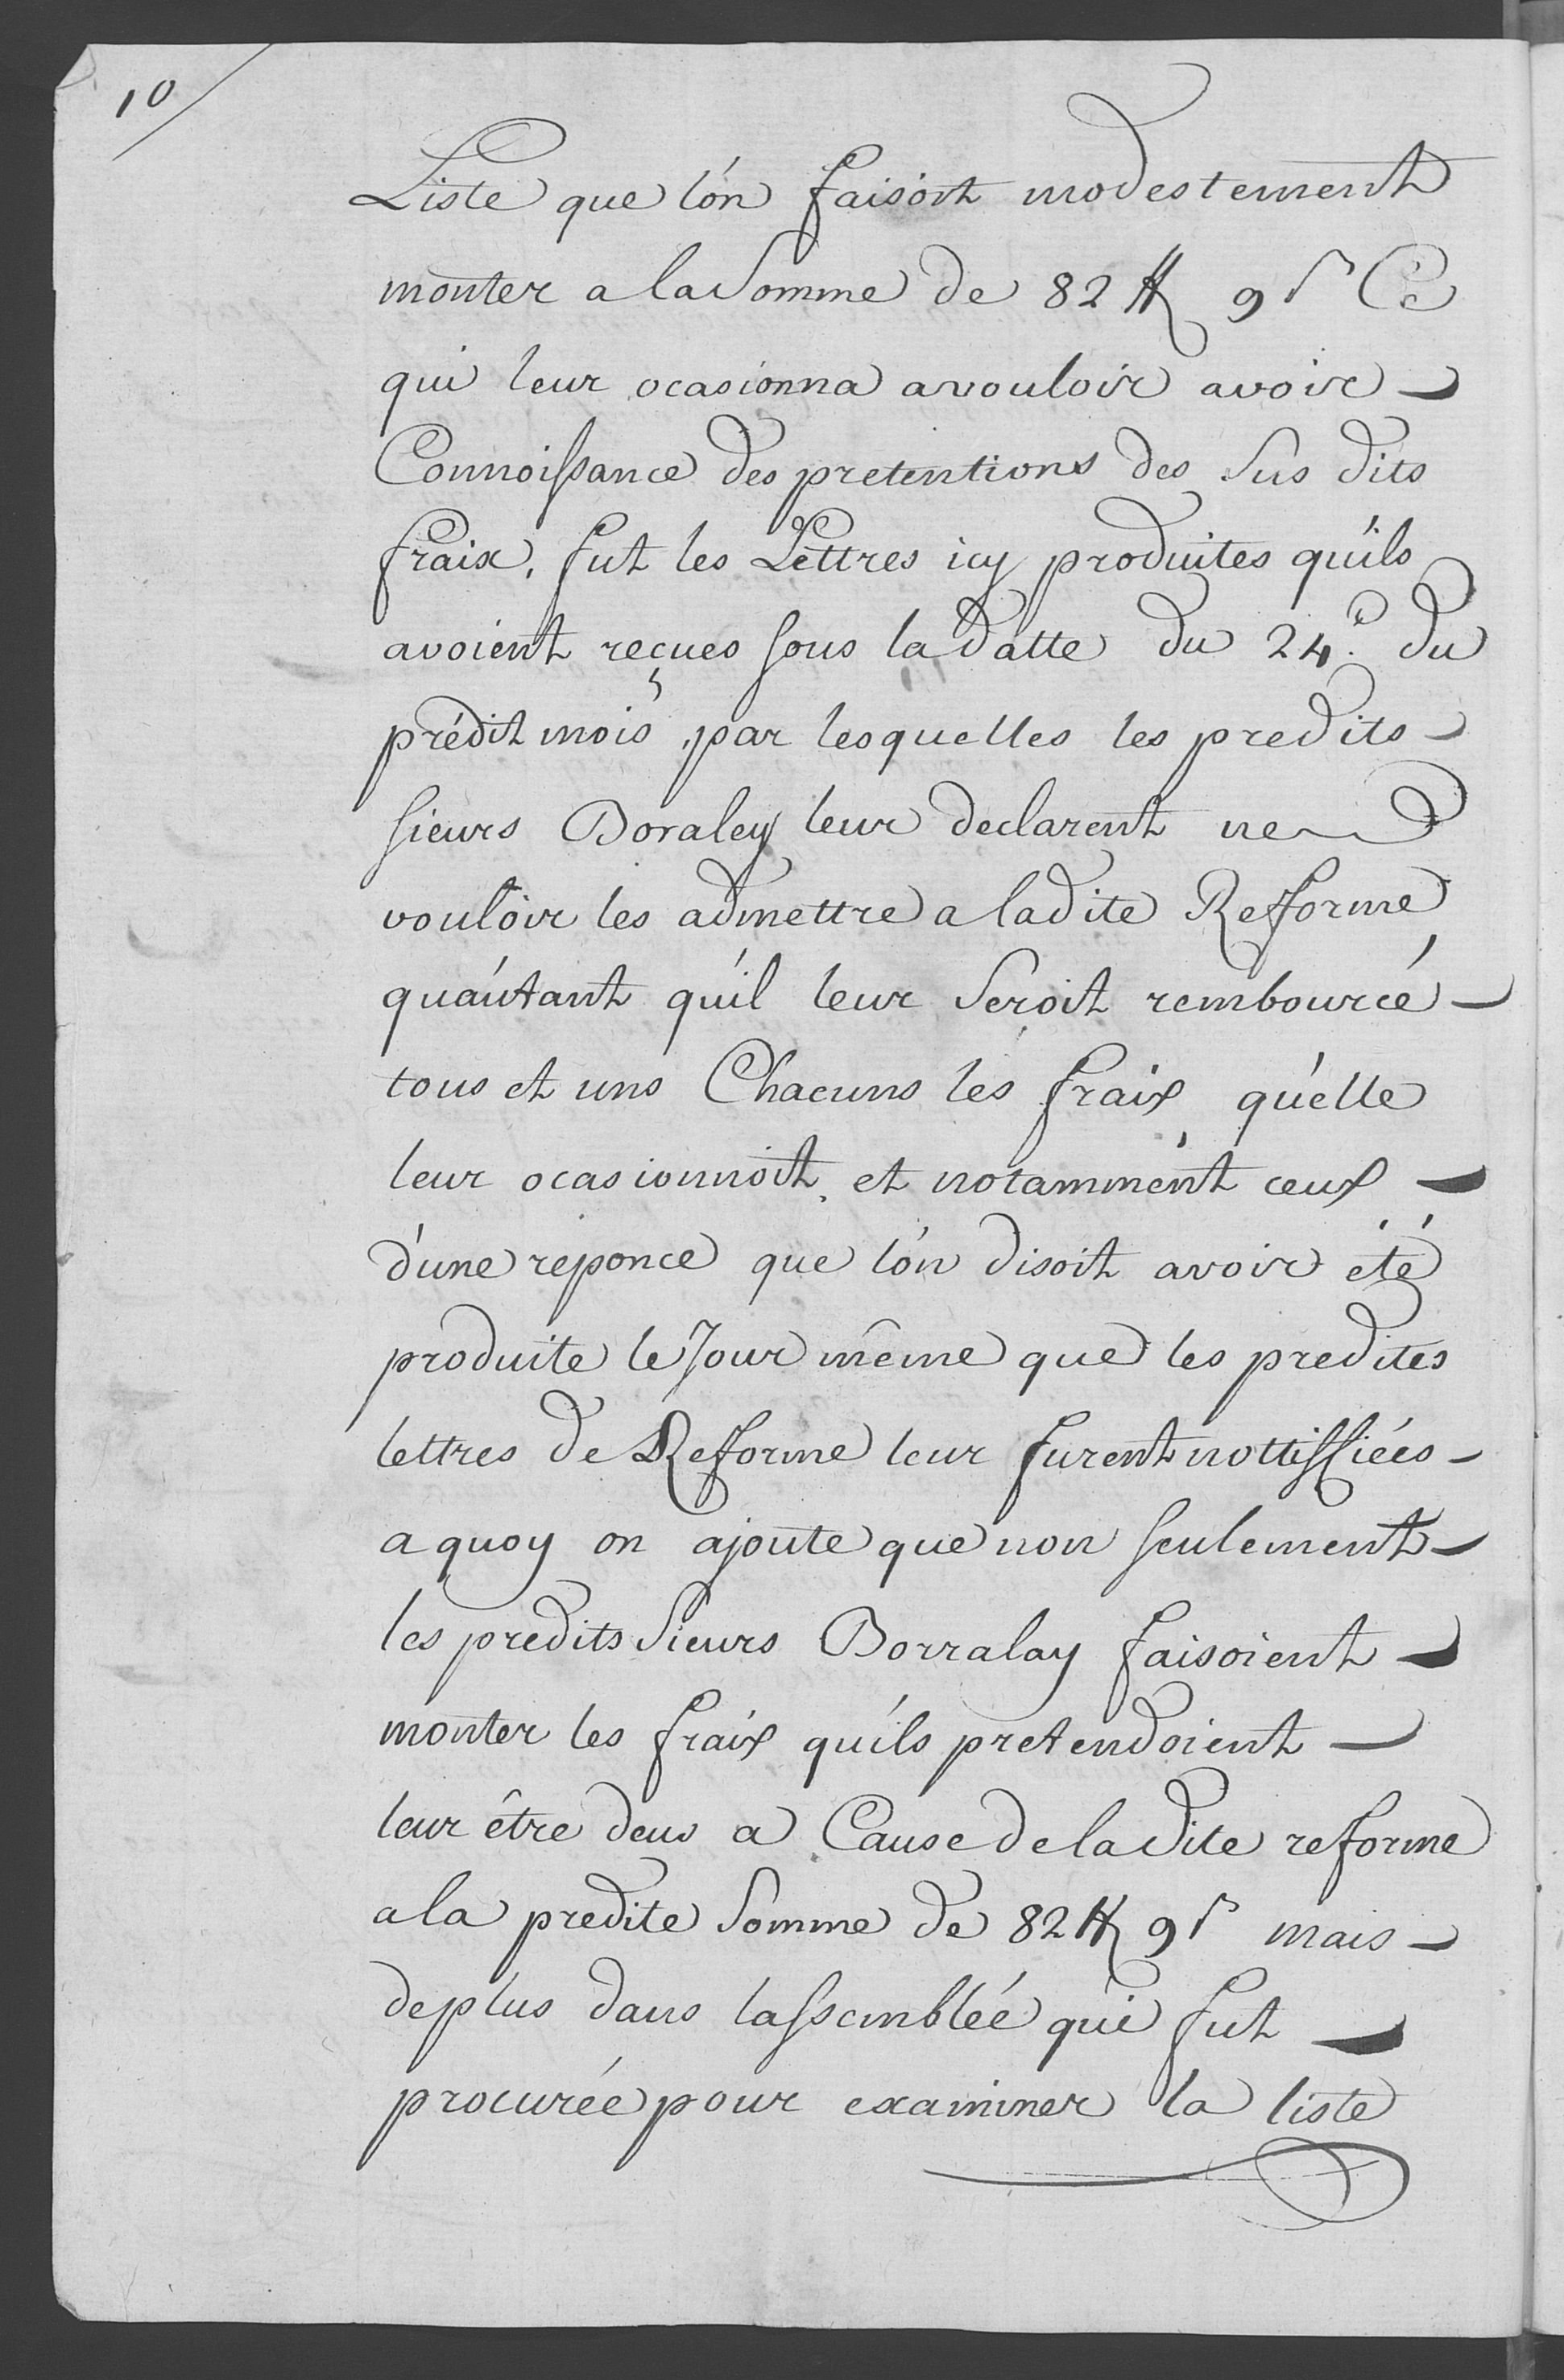 10
Liste que l'on faisoit modestement
monter a la Somme de 82 ₶ 9 s Ce
qui leur ocasionna avouloir avoir
Connoissance des pretentions des Sus dits
fraix, fut les Lettres icy produites qu'ils
avoient reçues sous la datte du 24.e du
prédit mois, par lesquelles les predits
sieurs Boraley leur declarent ne
vouloir les admettre a ladite Refforme
qu'autant qu'il leur Seroit rembourcé
tous et uns Chacuns les fraix qu'elle
leur ocasionnoit, et notamment ceux
d'une reponce que l'on disoit avoir été
produite le Jour même que les predites
lettres de Refforme leur furent nottiffiées
a quoy on ajoute que non seulement
les predits Sieurs Borralay faisoient
monter les fraix qu'ils pretendoient
leur être deus a Cause de la dite reforme
a la predite Somme de 82 ₶ 9 s mais
deplus dans lassemblée qui fut
procurée pour examiner la liste